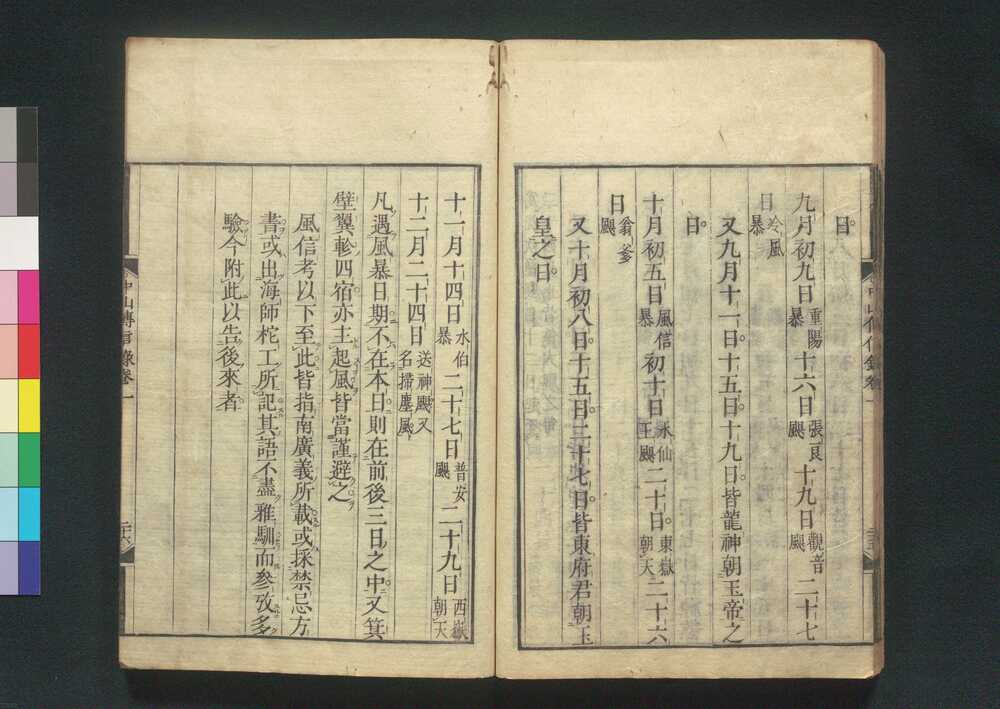 日
九月初九日重陽暴十六日張良颶十九日觀音颶二十七
日冷風暴
又九月十一日十五日十九日皆龍神朝玉帝之
日
十月初五日風信暴初十日水仙王颶二十日東嶽朝天二十六
日翁爹颶
又十月初八日十五日二十七日皆東府君朝玉
皇之日
中山傳信錄卷一
十一月十四日水伯暴二十七日普安颶二十九日西嶽朝天
十二月二十四日送神颶又名掃塵風
凡遇風暴日期不在本日則在前後三日之中又箕
壁翼軫四宿亦主起風皆當謹避之
風信考以下至此皆指南廣義所載或採禁忌方
書或出海師柁工所記其語不盡雅馴而參攷多
驗今附此以告後來者
中山傳信錄卷一
二十六